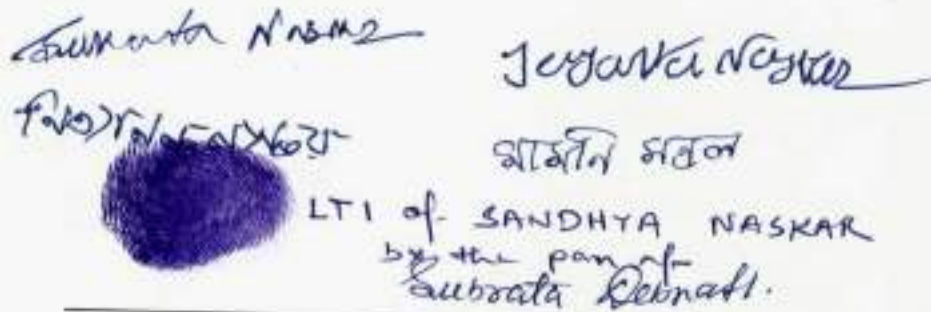 Naskar
Jayanta Naskar
মামনি মন্ডল
LTI of SANDHYA NASKAR
by the pen of
Subrata Debnath.